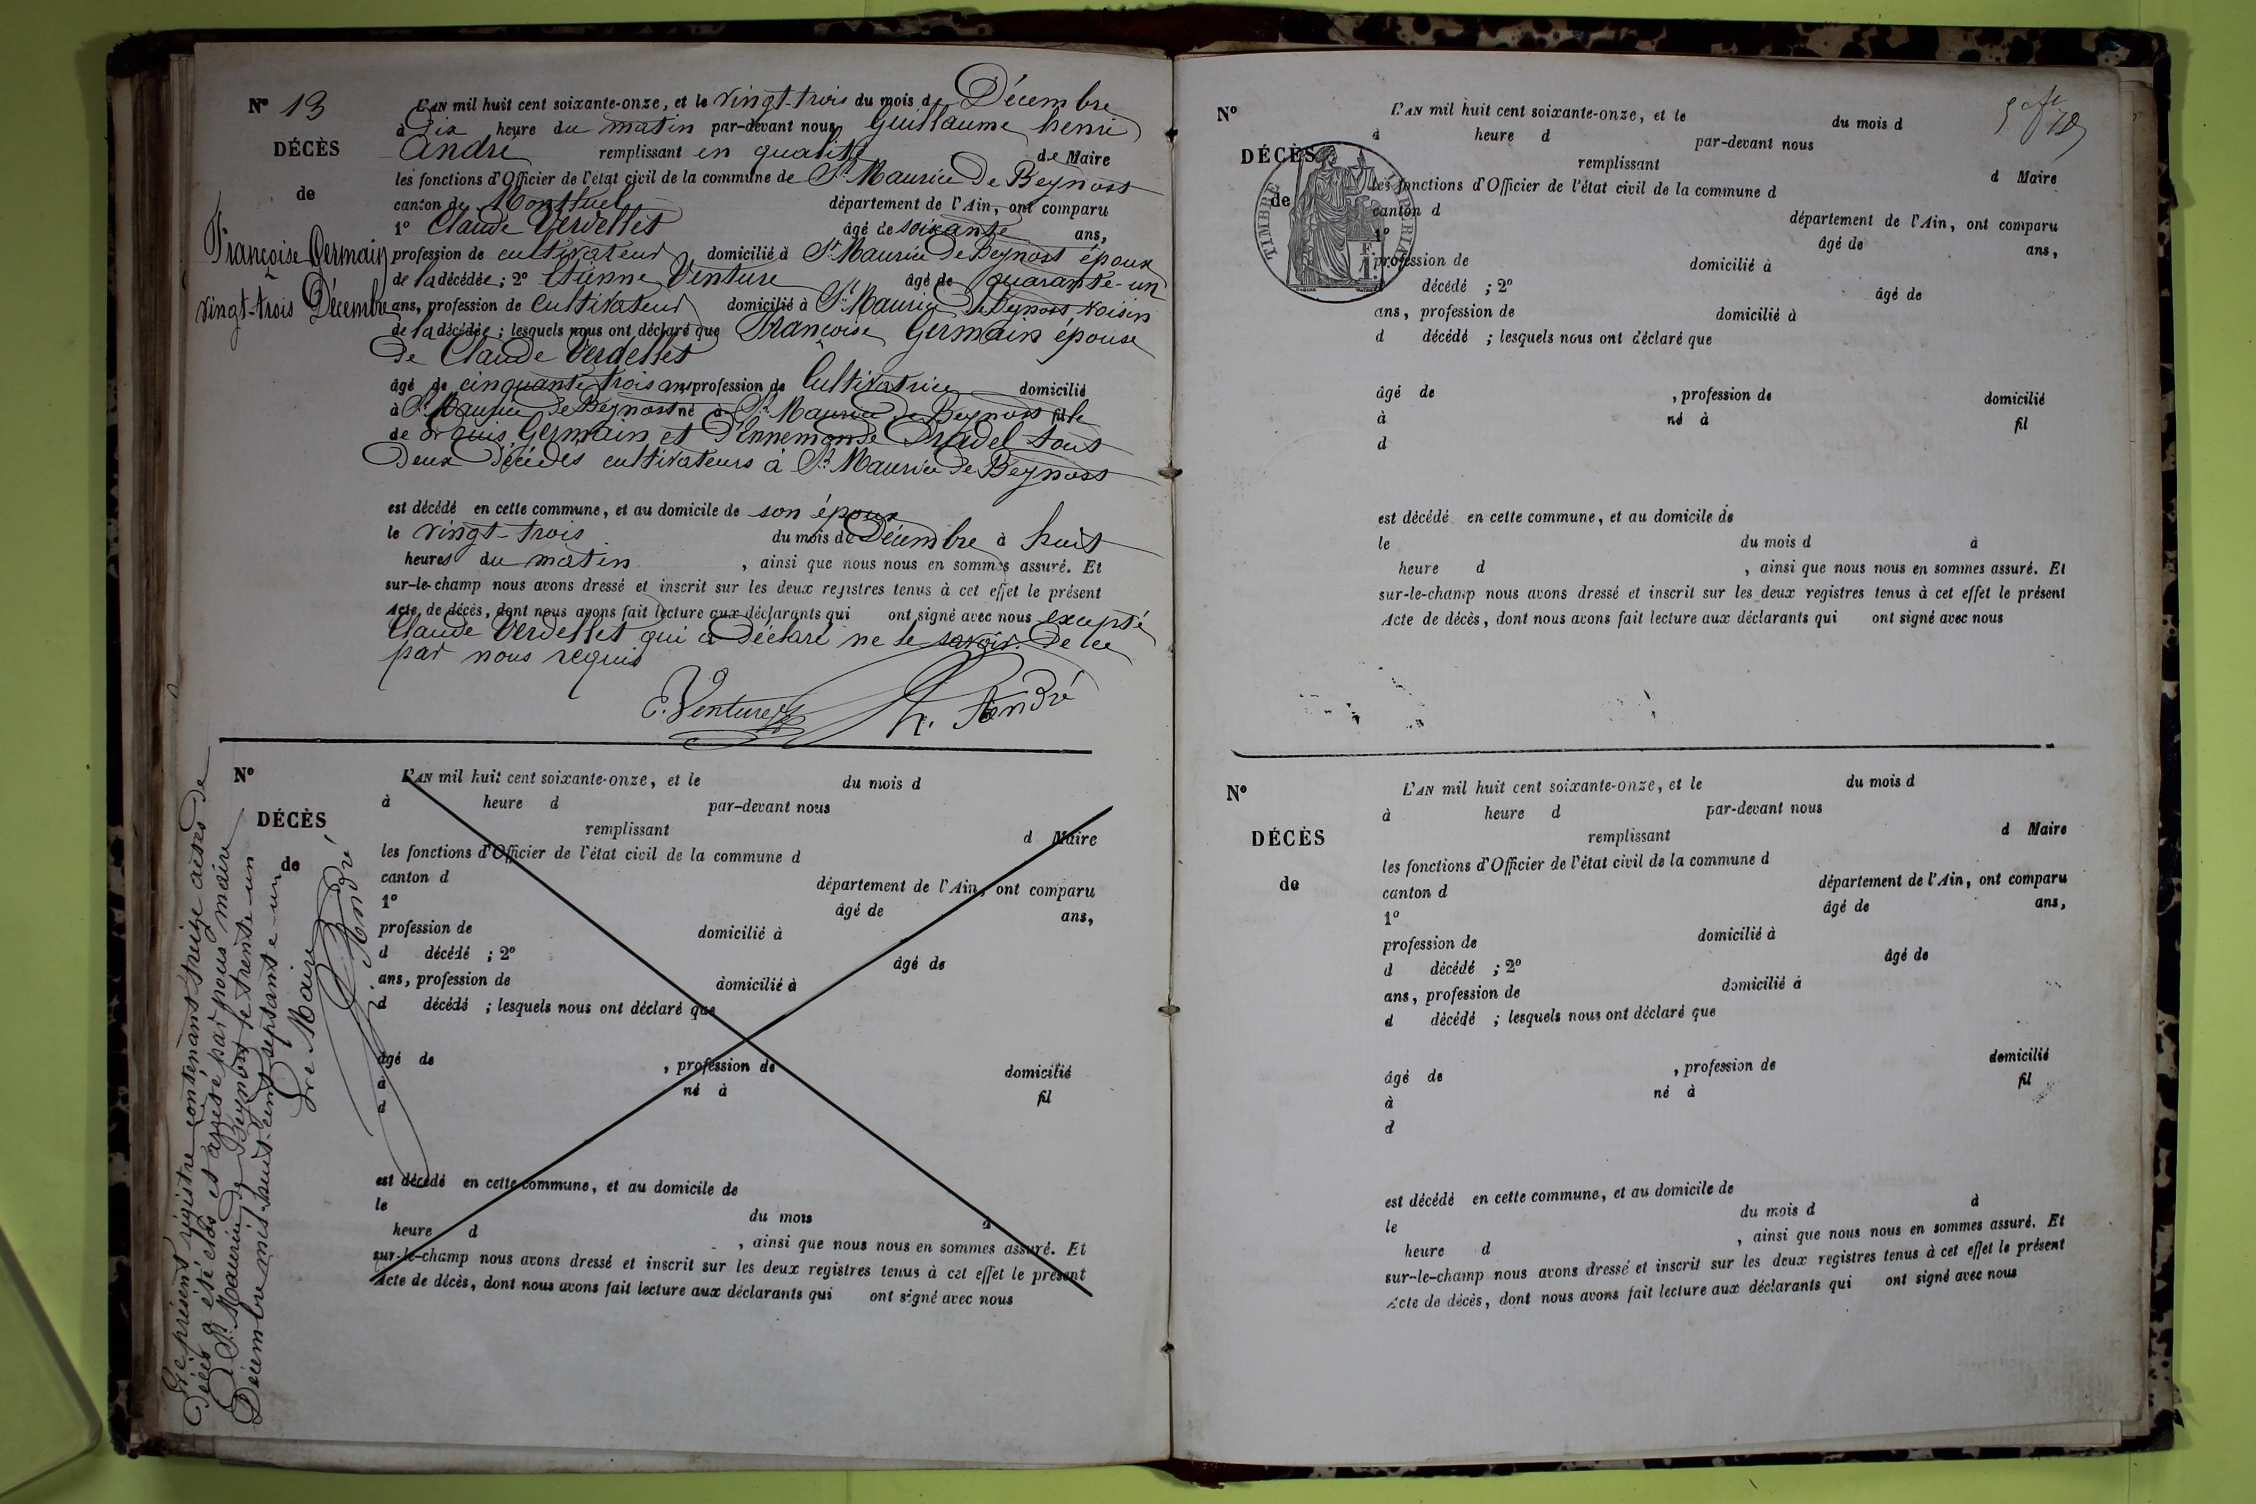 N° 13
DÉCÈS
de
Françoise Germain
vingt-trois Décembre
L'AN mil huit cent soixante-onze, et le vingt-trois du mois de Décembre
à Dix heure du matin par-devant nous Guillaume henri
André remplissant en qualité de Maire
les fonctions d'Officier de l'état civil de la commune de St Maurice De Beynost
canton de Montluel département de l'Ain, ont comparu
1° Claude Verdellet âgé de soixante ans,
profession de cultivateur domicilié à St Maurice de Beynost époux
de la décédée ; 2° Etienne Venture âgé de quarante-un
ans, profession de Cultivateur domicilié à St Maurice De Beynost, voisin
de la décédée ; lesquels nous ont déclaré que Françoise Germain épouse
de Claude Verdellet
âgé de cinquante trois ans, profession de Cultivatrice domicilié
à St Maurice de Beynost né à St Maurice de Beynost fille
de Louis Germain et D'Ennemonde Pradel tous
Deux Décédés cultivateurs à St Maurice de Beynost
est décédé en cette commune, et au domicile de son époux
le vingt-trois du mois de Décembre à huit
heures du matin , ainsi que nous nous en sommes assuré. Et
sur-le-champ nous avons dressé et inscrit sur les deux registres tenus à cet effet le présent
Acte de décès, dont nous avons fait lecture aux déclarants qui ont signé avec nous excepté
Claude Verdellet qui a Déclaré ne le savoir De ce
par nous requis
E. Venture h. André
N°
DÉCÈS
de
L'AN mil huit cent soixante-onze, et le du mois d
à heure d par-devant nous
remplissant d Maire
les fonctions d'Officier de l'état civil de la commune d
canton d département de l'Ain, ont comparu
1° âgé de ans,
profession de domicilié à
d décédé ; 2° âgé de
ans, profession de domicilié à
d décédé ; lesquels nous ont déclaré que
âgé de , profession de domicilié
à né à fil
d
est décédé en cette commune, et au domicile de
le du mois à
heure d , ainsi que nous nous en sommes assuré. Et
sur-le-champ nous avons dressé et inscrit sur les deux registres tenus à cet effet le présent
Acte de décès, dont nous avons fait lecture aux déclarants qui ont signé avec nous
Le présent registre contenant treize actes de
Décès a été clos et arrêté par nous maire
De St Maurice de Beynost le trente-un
Décembre mil-huit-cent septante-un
Le Maire
h. André
N°
DÉCÈS
de
TIMBRE IMPÉRIAL
1 F.
L'AN mil huit cent soixante-onze, et le du mois d
à heure d par-devant nous
remplissant d Maire
les fonctions d'Officier de l'état civil de la commune d
canton d département de l'Ain, ont comparu
1° âgé de ans,
profession de domicilié à
décédé ; 2° âgé de
ans, profession de domicilié à
d décédé ; lesquels nous ont déclaré que
âgé de , profession de domicilié
à né à fil
d
est décédé en cette commune, et au domicile de
le du mois d à
heure d , ainsi que nous nous en sommes assuré. Et
sur-le-champ nous avons dressé et inscrit sur les deux registres tenus à cet effet le présent
Acte de décès, dont nous avons fait lecture aux déclarants qui ont signé avec nous
N°
DÉCÈS
de
L'AN mil huit cent soixante-onze, et le du mois d
à heure d par-devant nous
remplissant d Maire
les fonctions d'Officier de l'état civil de la commune d
canton d département de l'Ain, ont comparu
1° âgé de ans,
profession de domicilié à
d décédé ; 2° âgé de
ans, profession de domicilié à
d décédé ; lesquels nous ont déclaré que
âgé de , profession de domicilié
à né à fil
d
est décédé en cette commune, et au domicile de
le du mois d à
heure d , ainsi que nous nous en sommes assuré. Et
sur-le-champ nous avons dressé et inscrit sur les deux registres tenus à cet effet le présent
Acte de décès, dont nous avons fait lecture aux déclarants qui ont signé avec nous